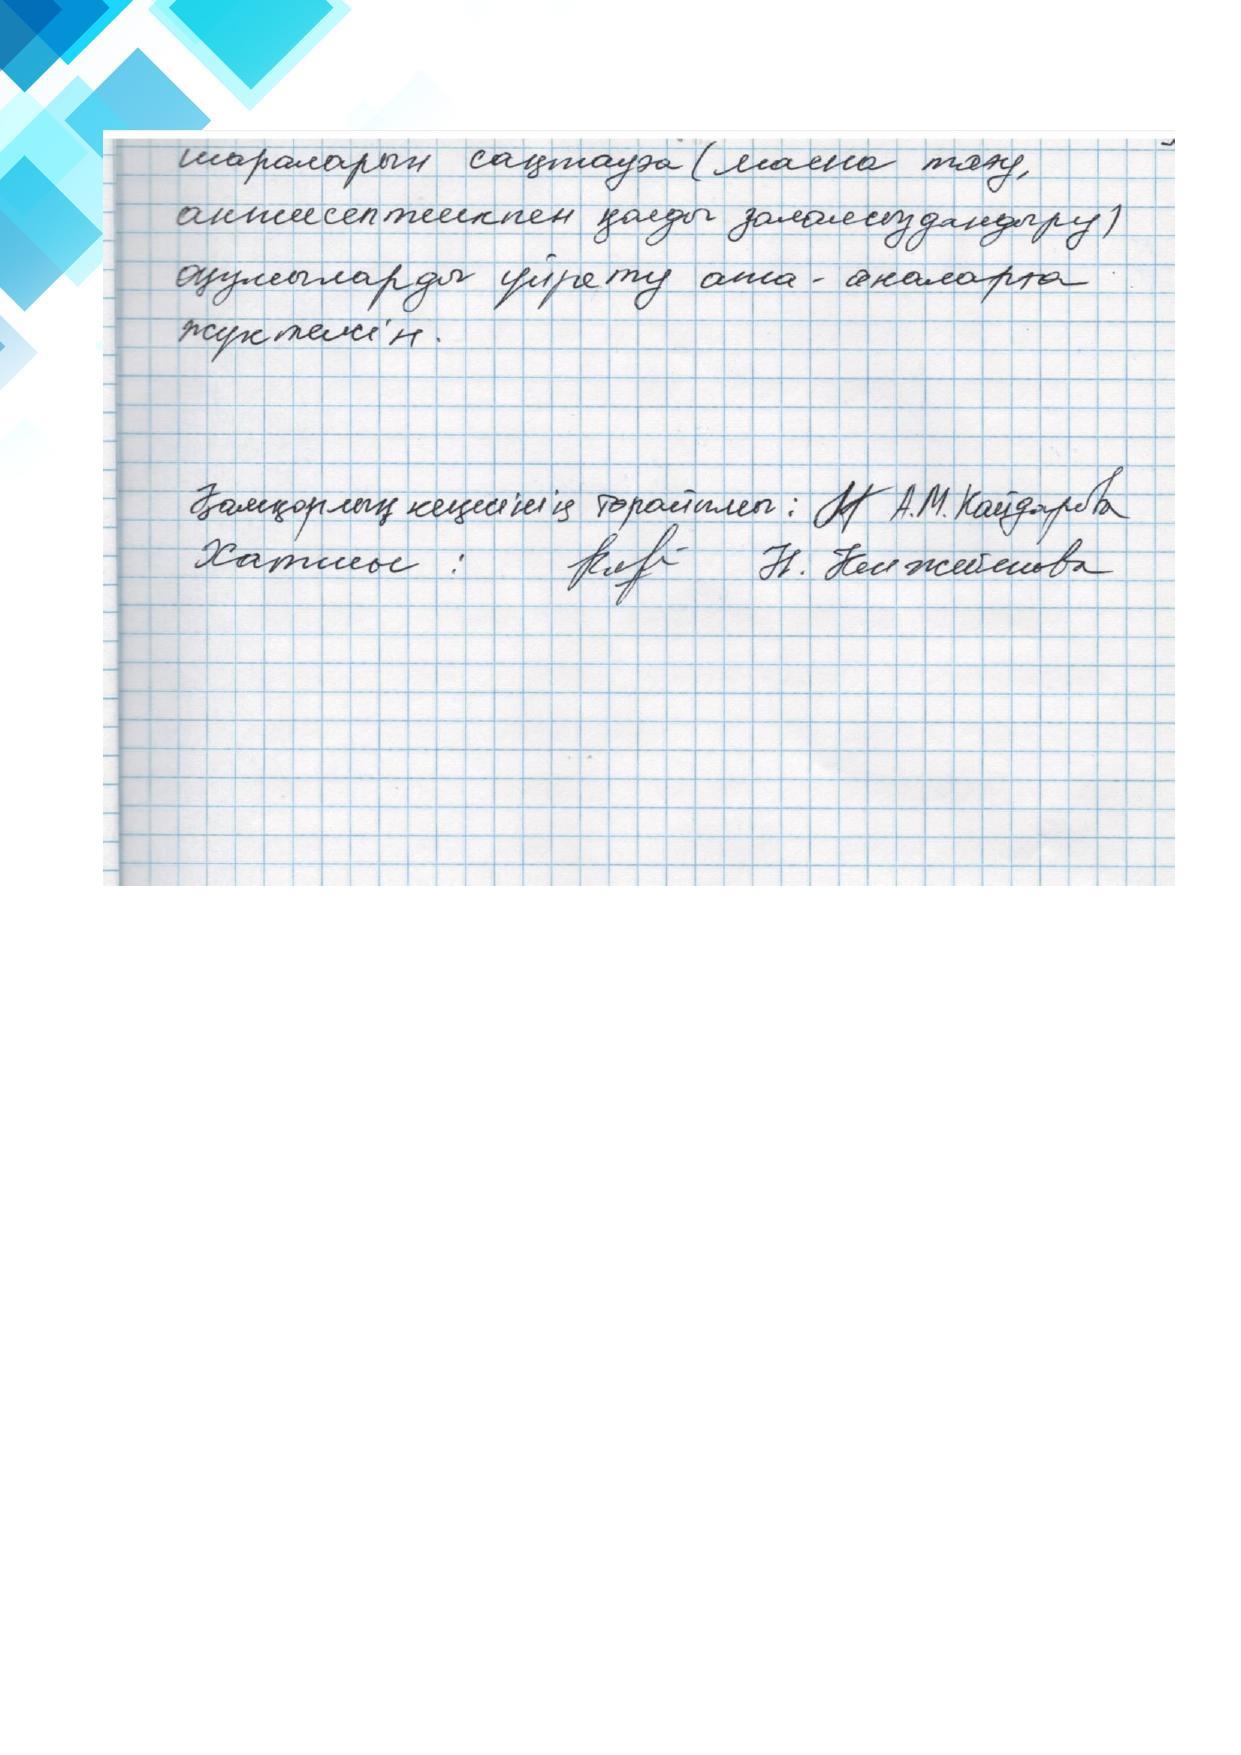 шараларын сақтауға (маска тағу,
антисептикпен қолды залалсыздандыру)
оқушыларды үйрету ата-аналарға
жүктелсін.
Қамқорлық кеңесінің төрайымы: А.М. Кайдарова
Хатшы : Н.